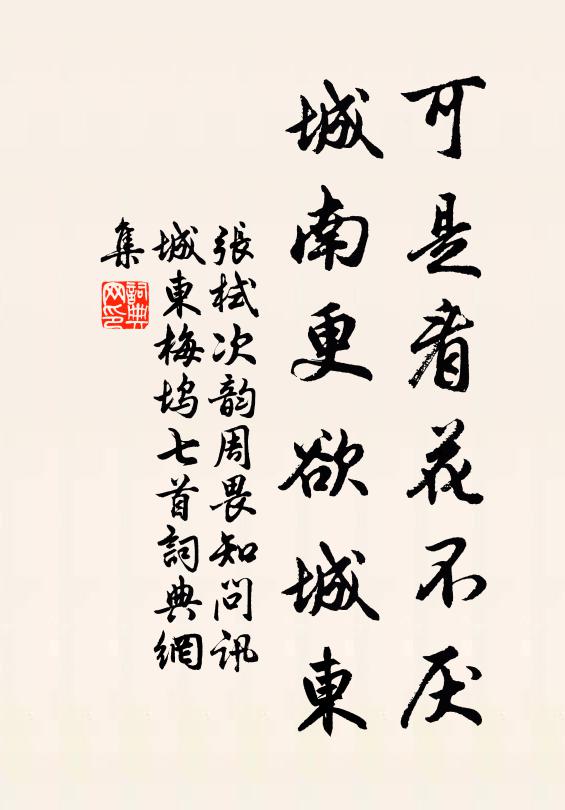 可是看花不厌
城南更欲城東
張栻次韵周畏知问讯
城東梅坞七首詞典網
集
詞典网印